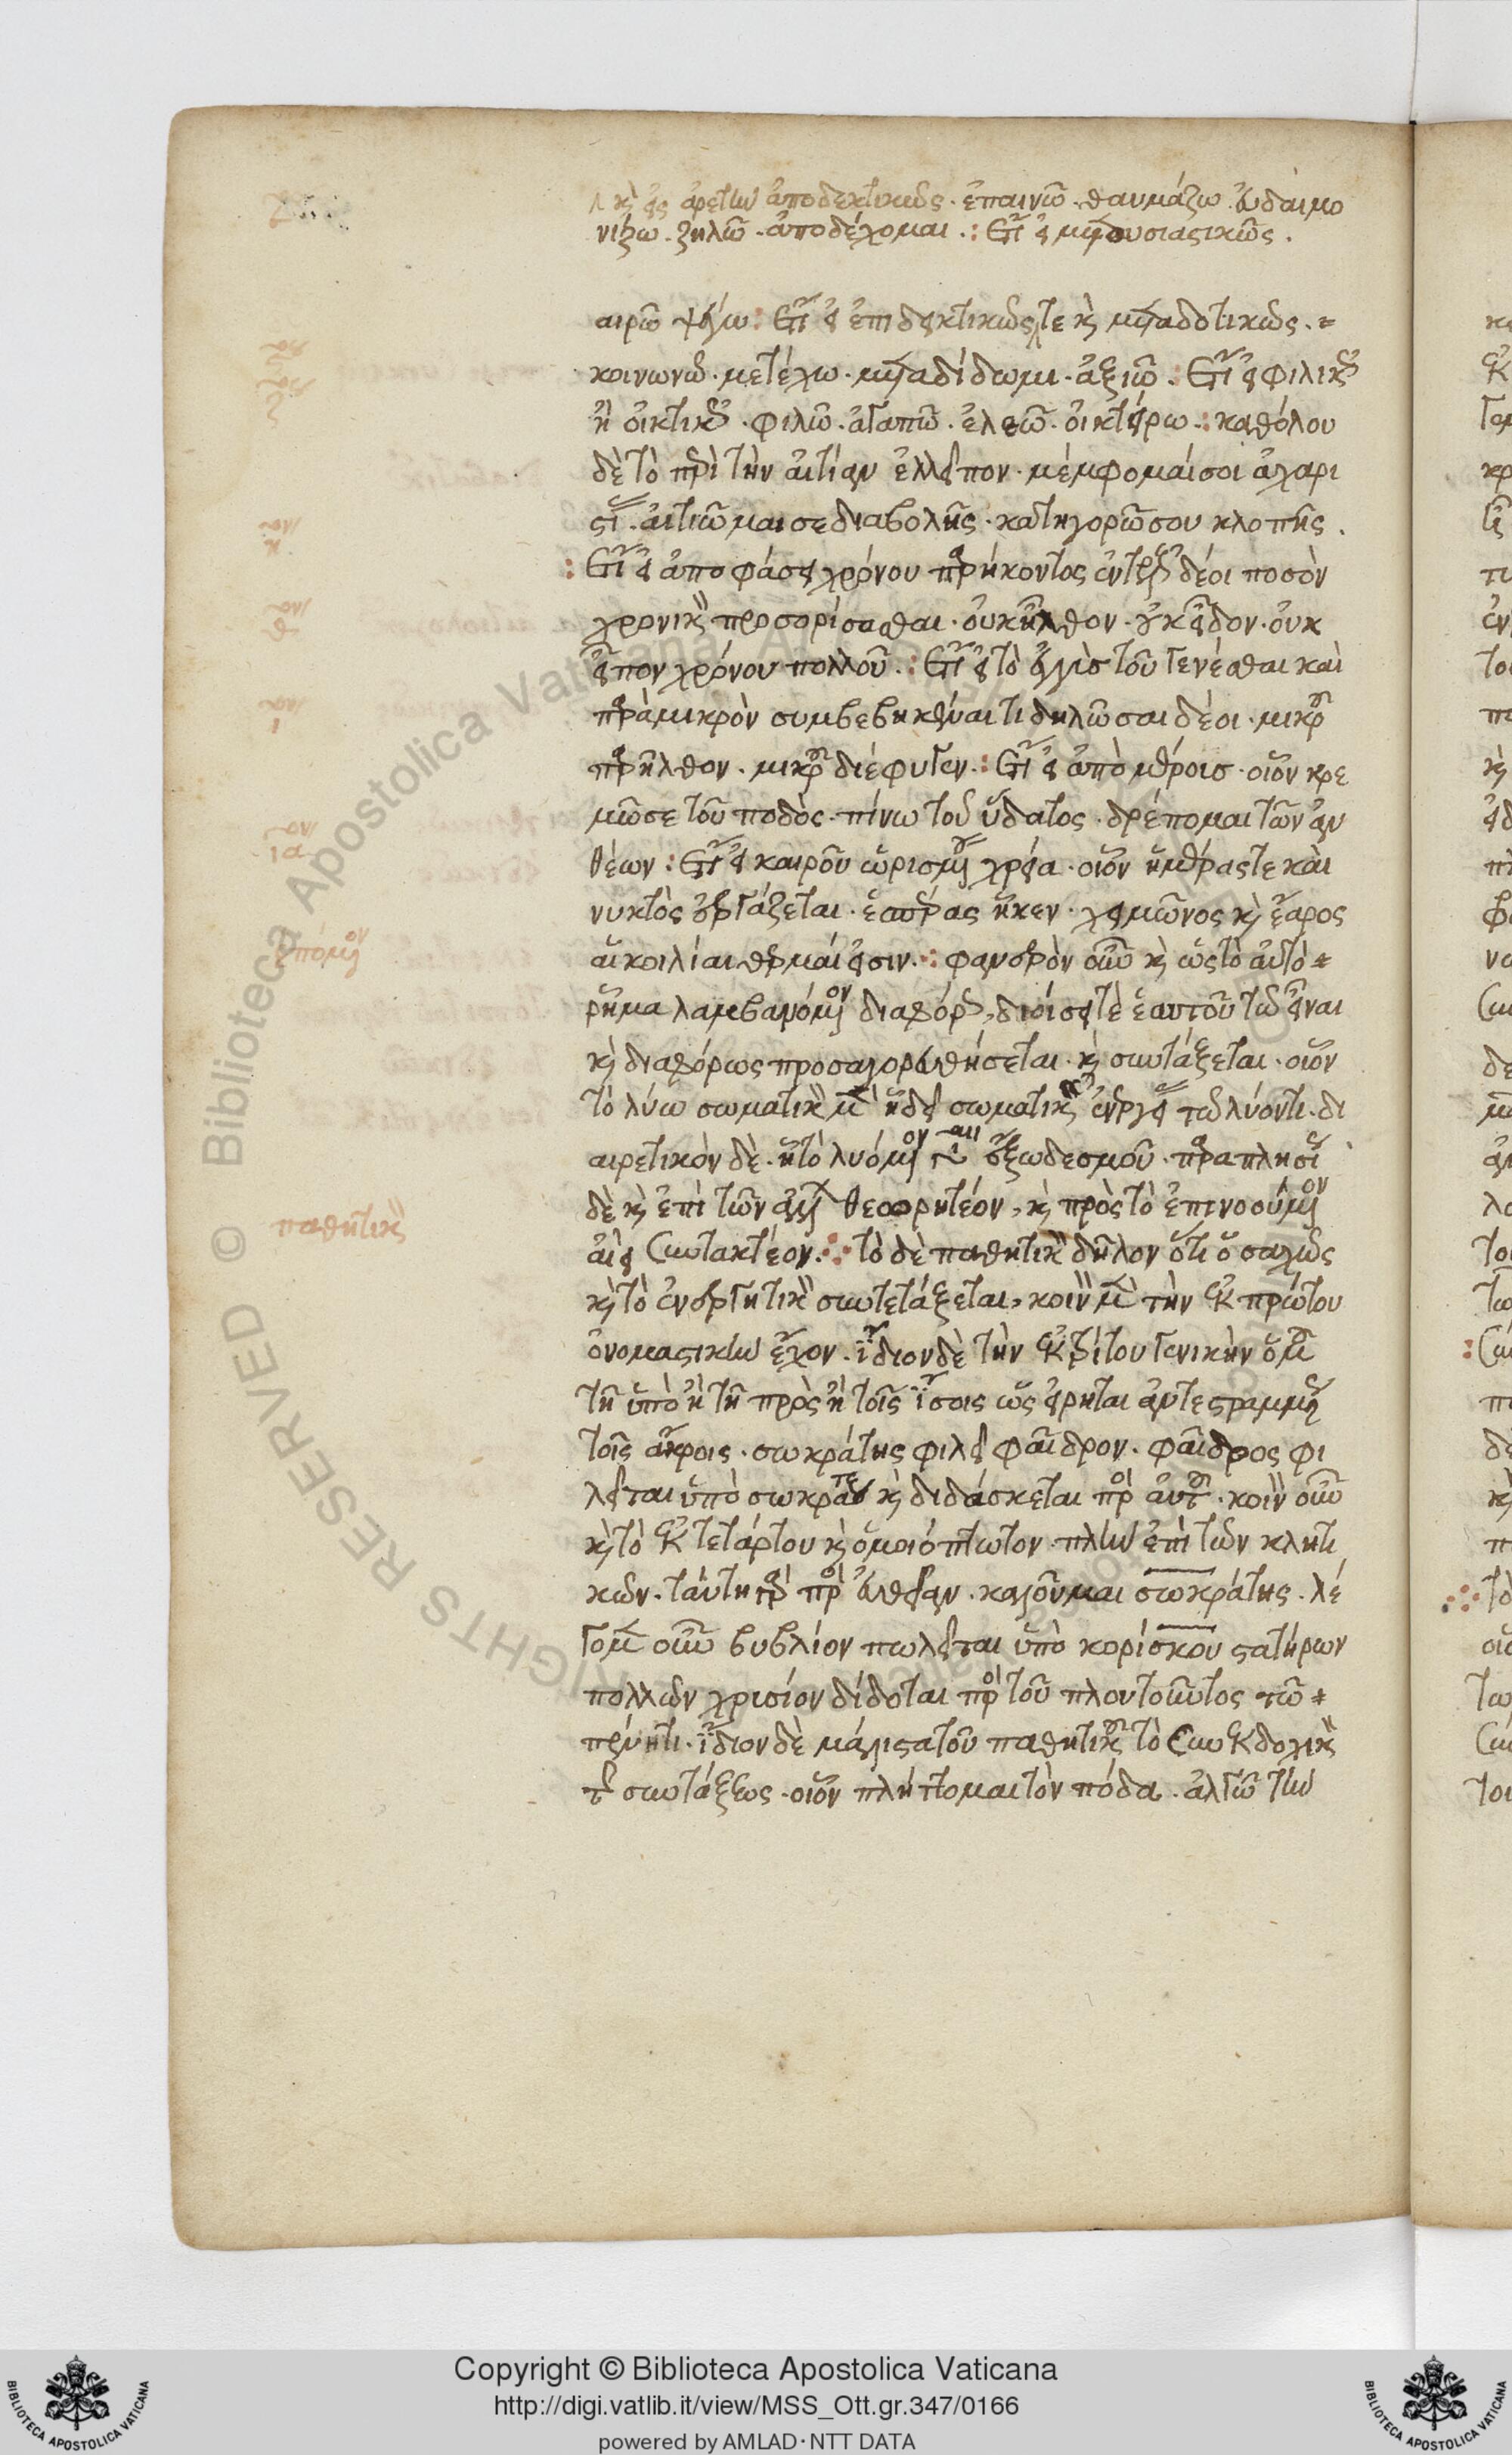 κὴ εἰς ἀρετὴν ἀποδεκτικῶς. ἐπαινῶ. θαυμάζω. εὐδαιμο
νίζω. ζηλῶ. ἀποδέχομαι. : Ἔτι εἰ μετουσιαστικῶς.
αιρῶ ψέγω : Ἔτι εἰ ἐπιδεκτικῶς τε καὶ μεταδοτικῶς.
κοινωνῶ. μετέχω. μεταδίδωμι. ἀξιῶ. : Ἔτι εἰ φιλικῶς
ἢ οἰκτικῶς. φιλῶ. ἀγαπῶ. ἐλεῶ. οἰκτείρω. : καθόλου
δὲ τὸ περὶ τὴν αἰτίαν ἐλλεῖπον. μέμφομαί σοι ἀχαρι
στίας. αἰτιῶμαι σε διαβολῆς. κατηγορῶ σου κλοπῆς.
: Ἔτι εἰ ἀποφάσει χρόνου παρήκοντος δέοι ποσὸν
χρονικὸν προσορίσασθαι. οὐκ ἦλθον. οὐκ εἶδον. οὐκ
εἶπον χρόνου πολλοῦ. : Ἔτι εἰ τὸ ἐγγὺς τοῦ γενέσθαι καὶ
παρὰ μικρὸν συμβεβηκέναι τι δηλῶσαι δέοι. μικροῦ
παρῆλθον. μικροῦ διέφυγεν. : Ἔτι εἰ ἀπὸ μέρους. οἷον κρε
μῶ σε τοῦ ποδὸς. πίνω τοῦ ὕδατος. δρέπομαι τῶν ἀν
θέων : Ἔτι εἰ καιροῦ ὡρισμένου χρεία. οἷον ἡμέρας τε καὶ
νυκτὸς ἐργάζεται. ἑσπέρας ἧκεν. χειμῶνος καὶ ἔαρος
αἱ κοιλίαι θερμαί εἰσιν. : φανερὸν οὖν καὶ ὡς τὸ αὐτὸ
ῥῆμα λαμβανόμενον διαφόρως, διοίσει τὲ ἑαυτοῦ τῶ εἶναι
ἑπόμενον
καὶ διαφόρως προσαγορευθήσεται. καὶ συντάξεται. οἷον
τὸ λύω σωματικὸν μὲν ἤδη σωματικῶς ἐνεργεῖ τῶ λύοντι. δι
αιρετικὸν δὲ. ἢ τὸ λυόμενον ἔξω δεσμοῦ. παραπλησίως
δὲ καὶ ἐπὶ τῶν ἄλλων θεωρητέον, καὶ πρὸς τὸ ἐπινοούμενον
παθητικὸν
ἀεὶ συντακτέον. τὸ δὲ παθητικὸν δῆλον ὅτι ὁσαχῶς
καὶ τὸ ἐνεργητικὸν συντετάξεται, κοινὸν μὲν τὴν ἐκ πρώτου
ὀνομαστικὴν ἔχον. ἴδιον δὲ τὴν ἐκ τρίτου γενικὴν ὁμοῦ
τῆ ὑπὸ ἢ τῆ πρὸς ἢ τοῖς ἴσοις ὡς εἴρηται ἀντεστραμμένως
τοῖς ἄκροις. σωκράτης φιλεῖ φαῖδρον. φαῖδρος φι
λεῖται ὑπὸ σωκράτους καὶ διδάσκεται παρ αὐτοῦ. κοινὸν οὖν
καὶ τὸ ἐκ τετάρτου καὶ ὁμοιόπτωτον. πλὴν ἐπὶ τῶν κλητι
κῶν. ταύτη γὰρ παρ εὐθεῖαν. καλοῦμαι σωκράτης. λέ
γομεν οὖν βυβλίον πωλεῖται ὑπὸ κορίσκου στατήρων
πολλῶν χρυσίον δίδοται παρὰ τοῦ πλουτοῦντος τῶ
πένητι. ἴδιον δὲ μάλιστα τοῦ παθητικοῦ τὸ συνεκδοχικὸν
τῆς συντάξεως. οἷον πλήττομαι τὸν πόδα. ἀλγῶ τὴν
Copyright © Biblioteca Apostolica Vaticana
http://digi.vatlib.it/view/MSS_Ott.gr.347/0166
powered by AMLAD·NTT DATA
BIBLIOTECA APOSTOLICA VATICANA
BIBLIOTECA APOSTOLICA VATICANA